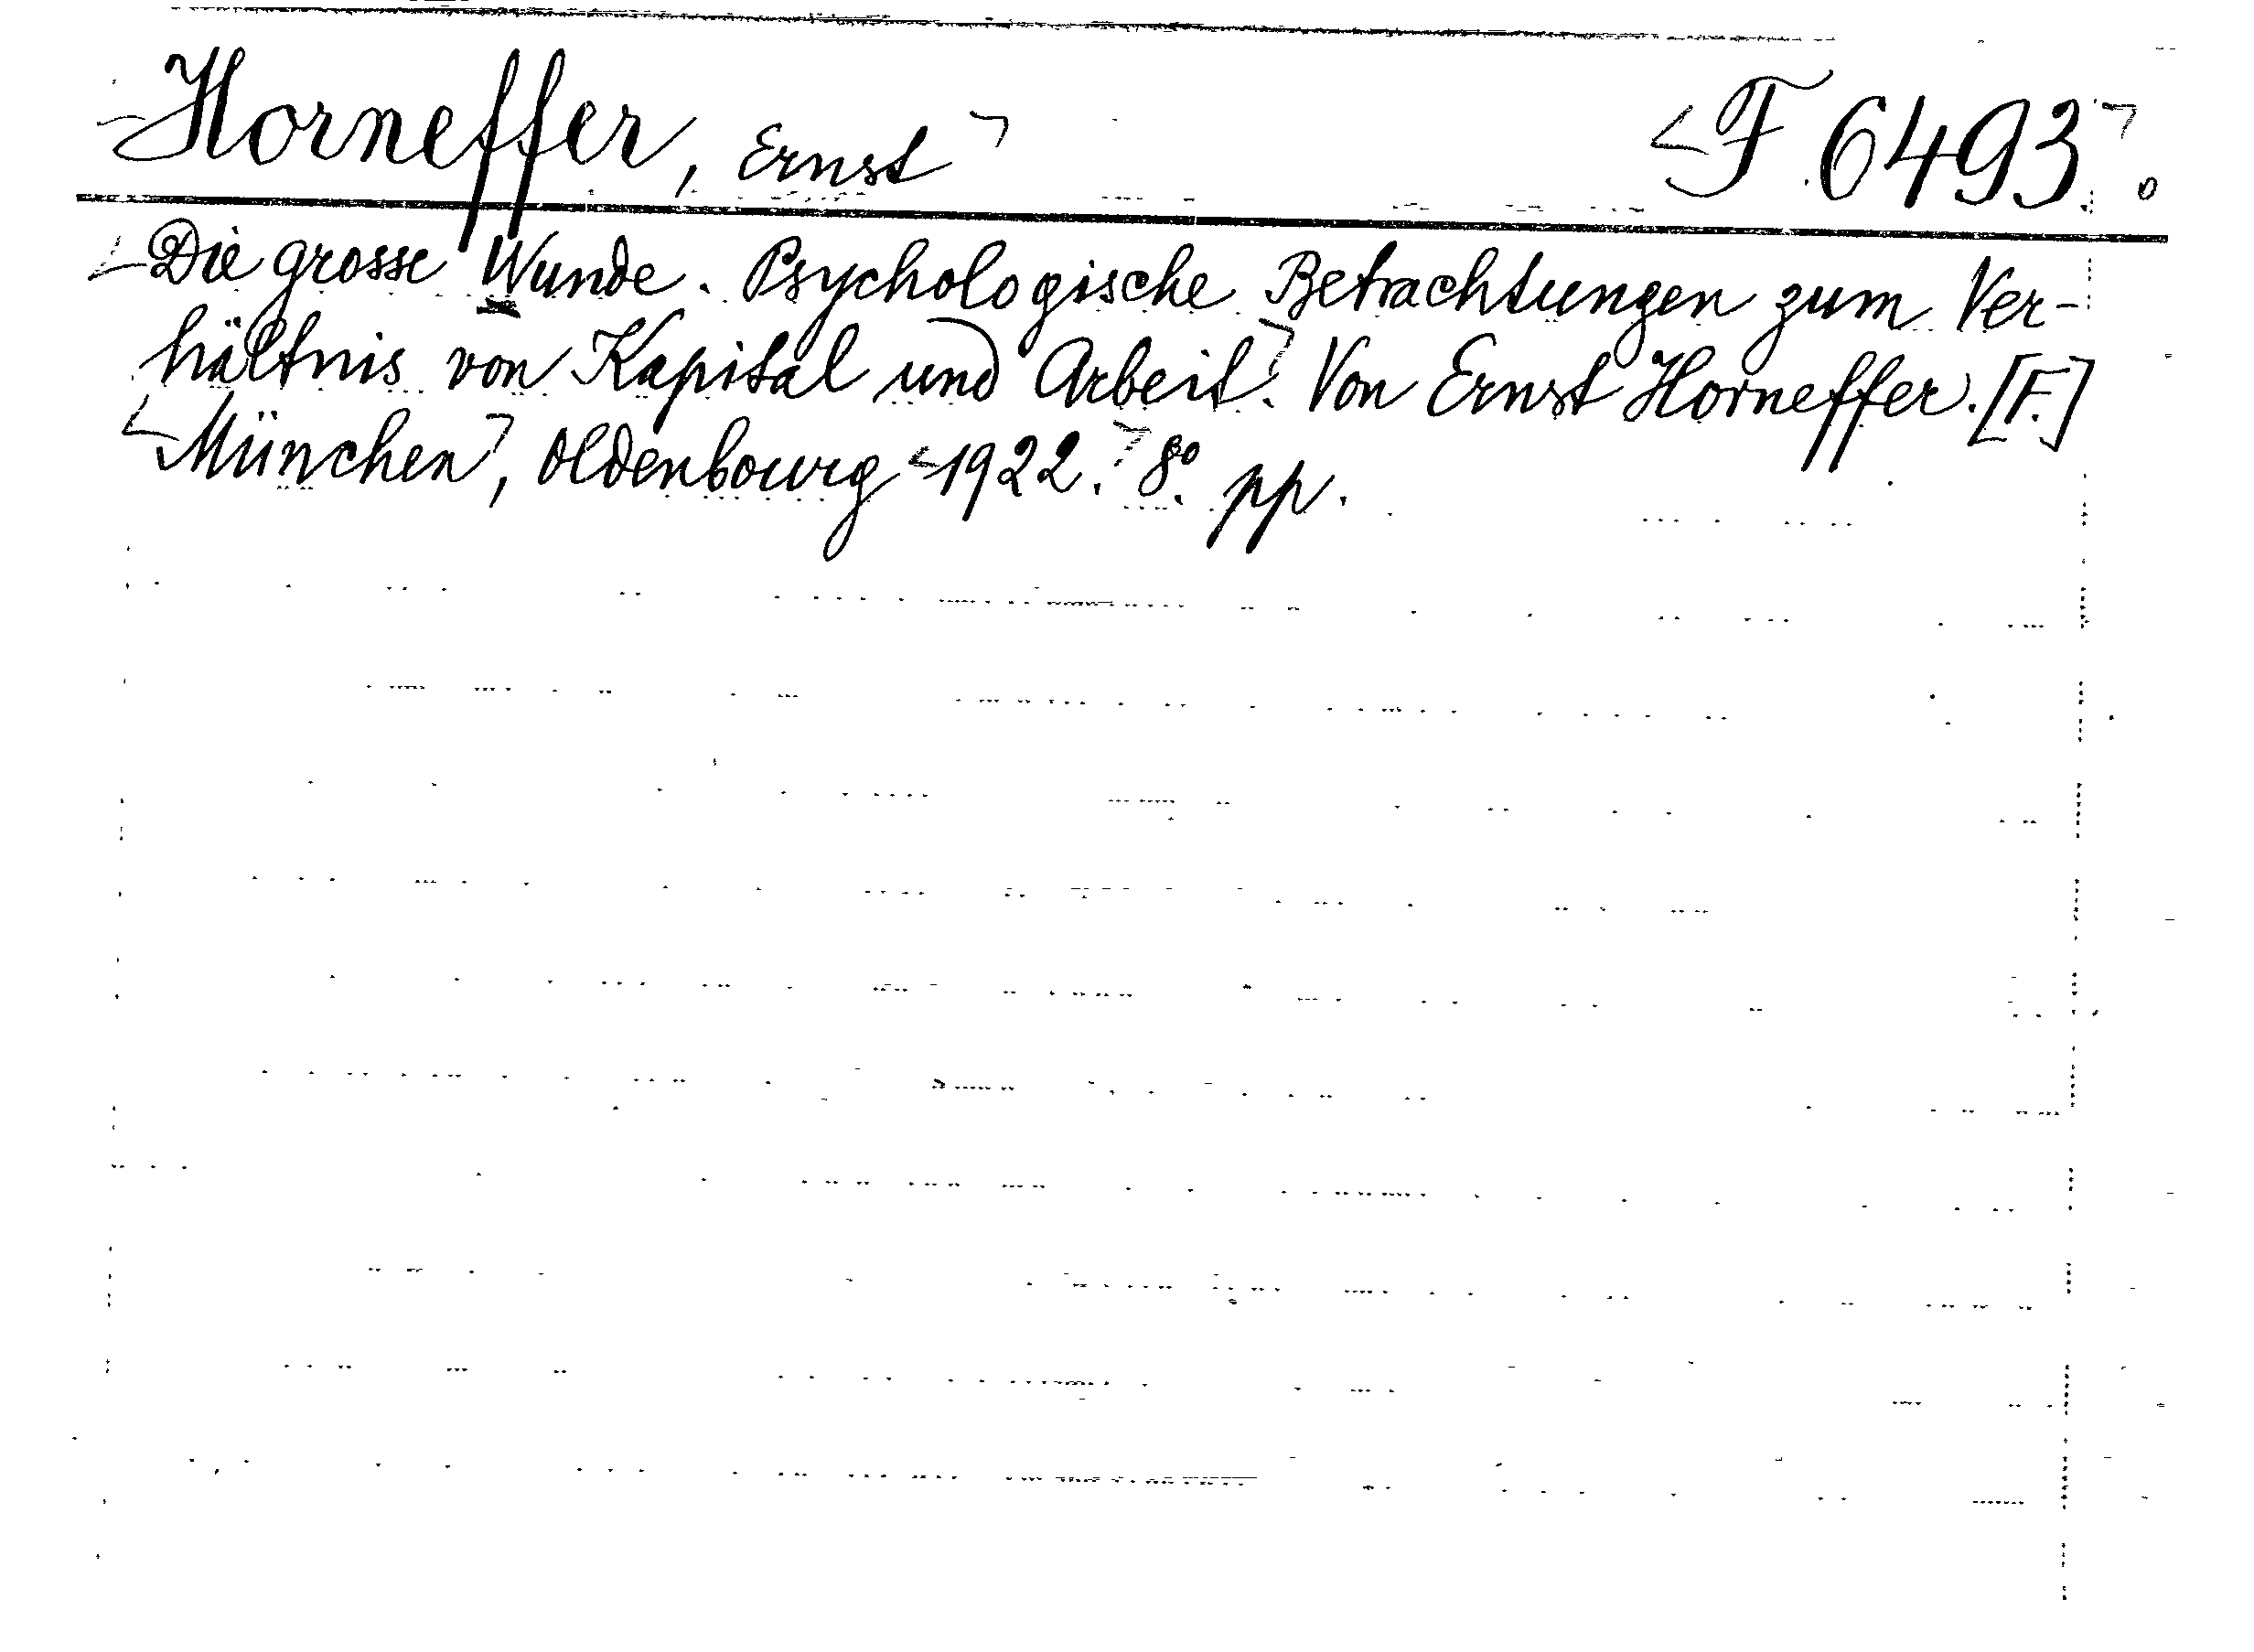 Horneffer, Ernst F 6493.
Die grosse Wunde. Psychologische Betrachtungen zum Ver-
hältnis von Kapital und Arbeit. Von Ernst Horneffer. [F.]
München, Oldenbourg 1922. 8º. pp.